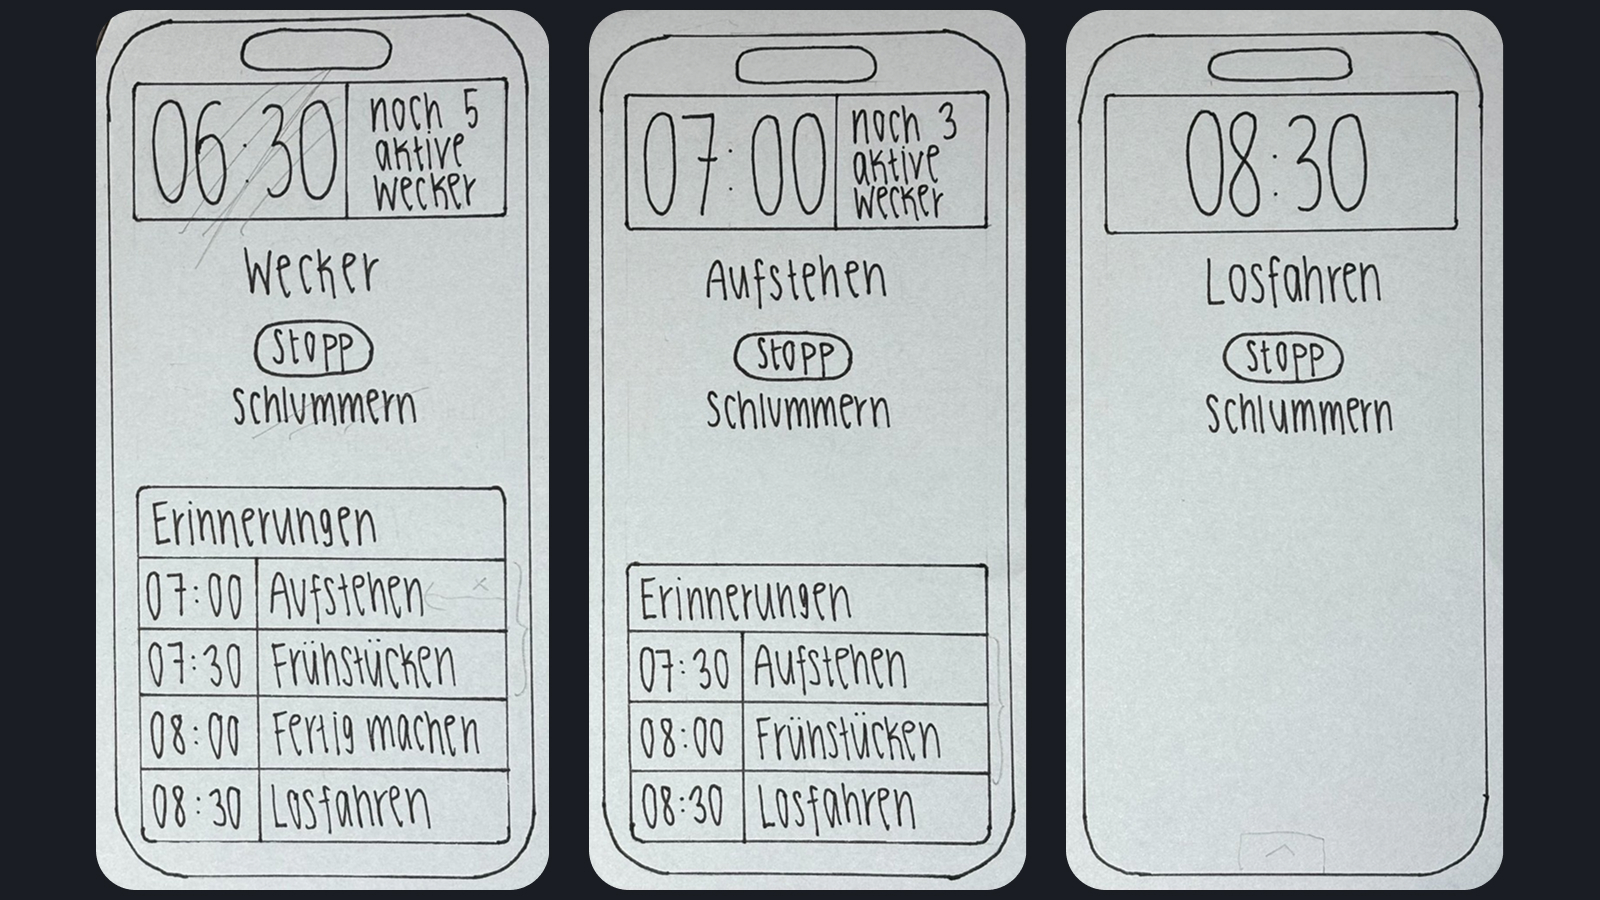 06:30
noch 5
aktive
wecker
Wecker
Stopp
Schlummern
Erinnerungen
07:00 Aufstehen
07:30 Frühstücken
08:00 Fertig machen
08:30 Losfahren
07:00
noch 3
aktive
wecker
Aufstehen
Stopp
Schlummern
Erinnerungen
07:30 Aufstehen
08:00 Frühstücken
08:30 Losfahren
08:30
Losfahren
Stopp
Schlummern